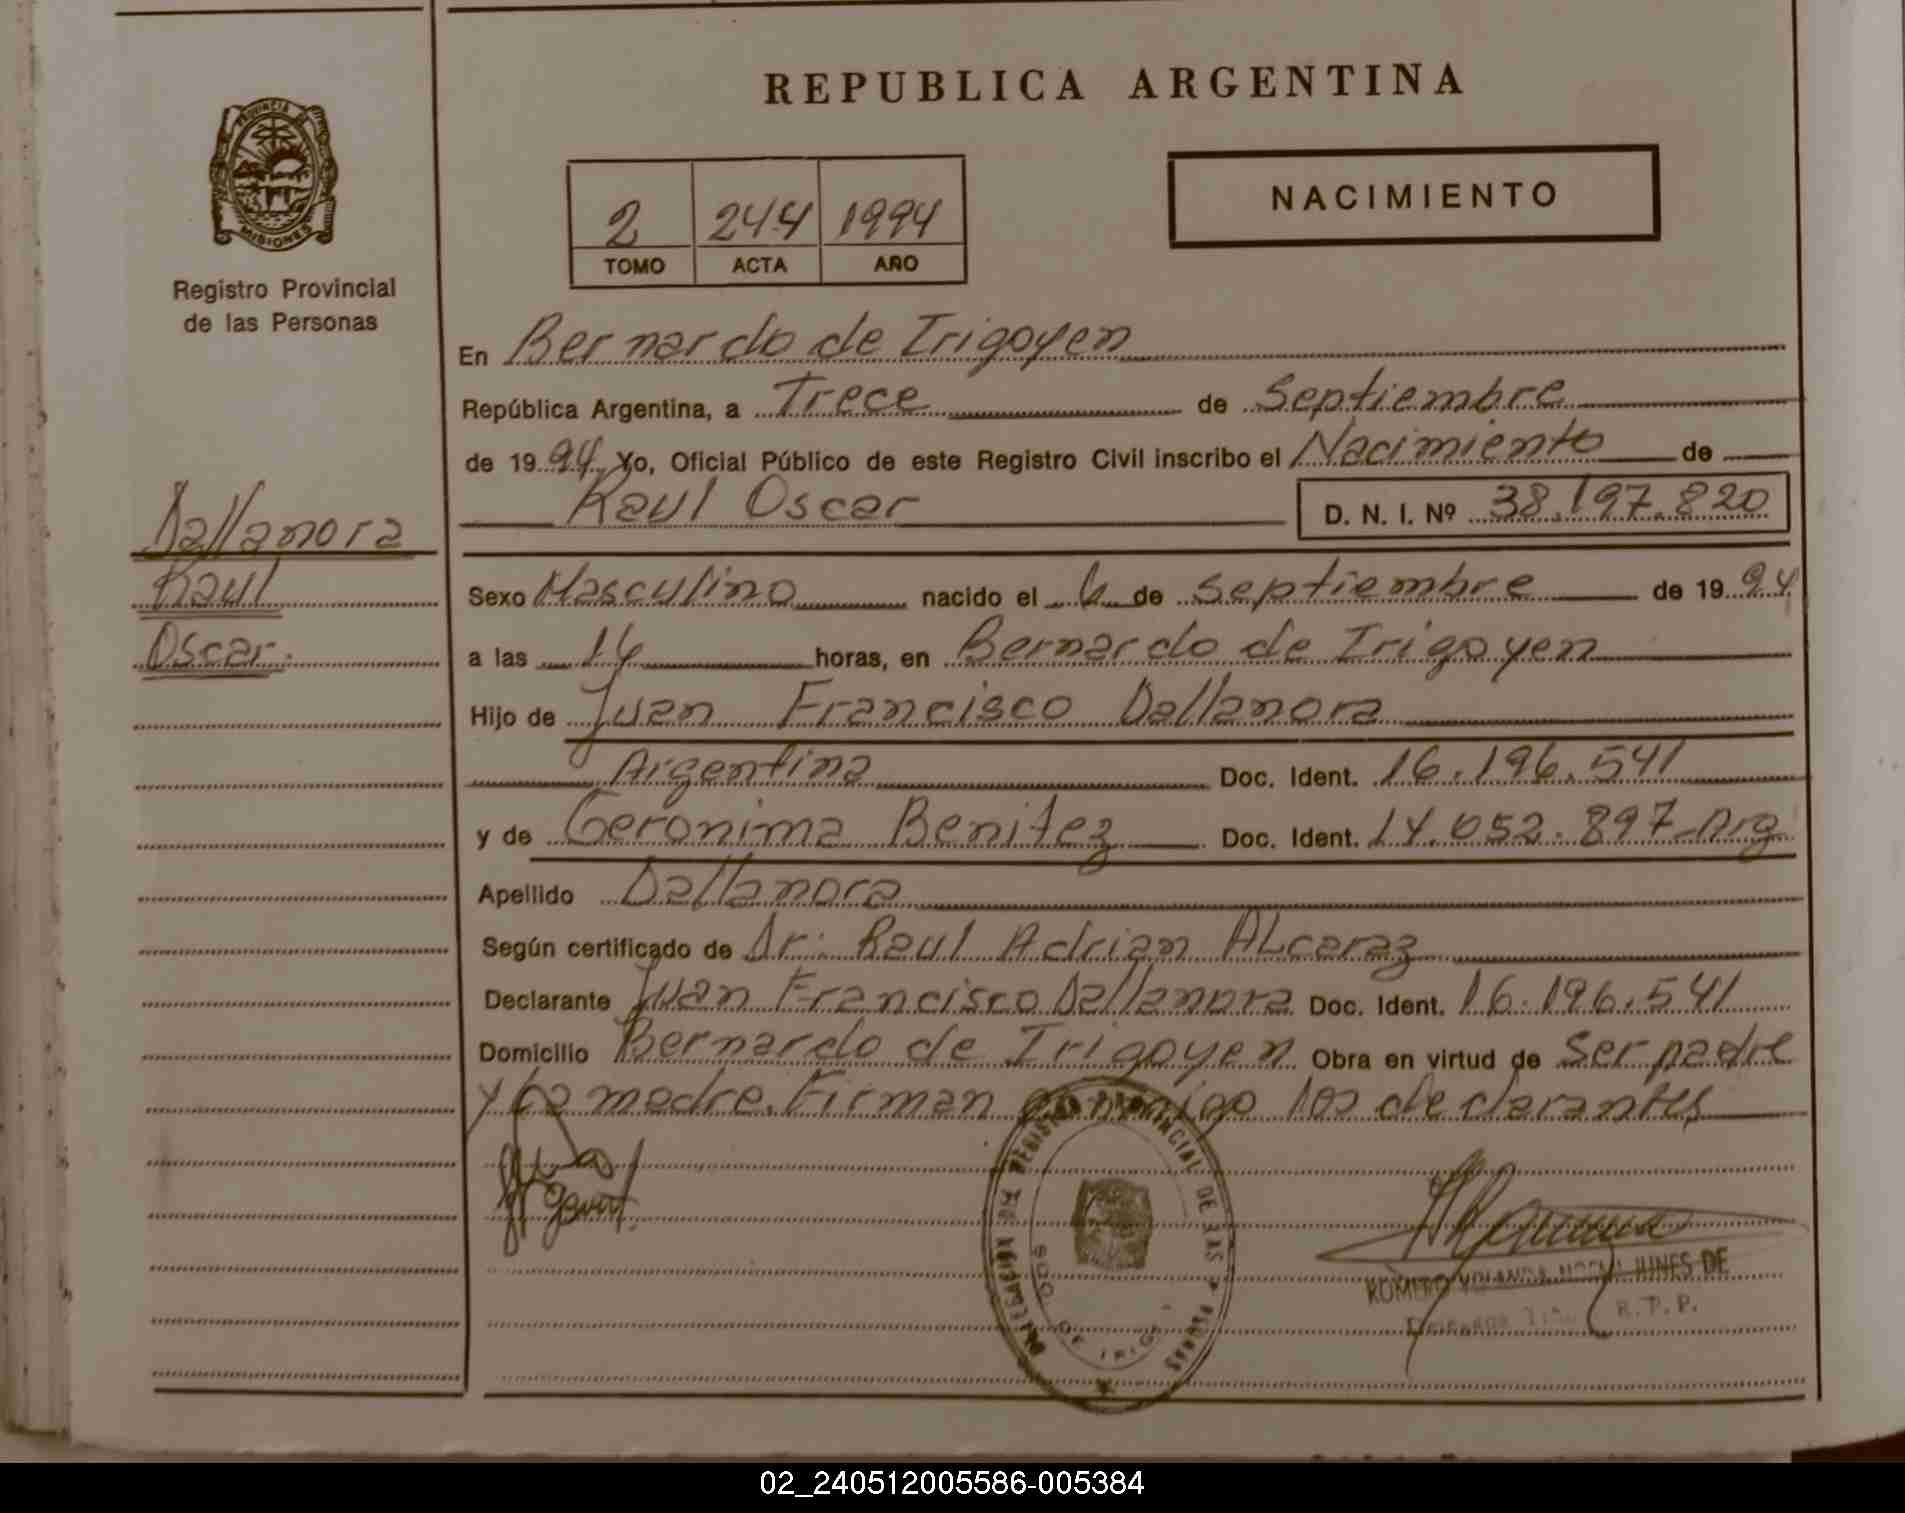 REPUBLICA ARGENTINA
PROVINCIA DE
MISIONES
Registro Provincial
de las Personas
2 244 1994
TOMO ACTA AÑO
NACIMIENTO
En Bernardo de Irigoyen
República Argentina, a Trece de Septiembre
de 1994 Yo, Oficial Público de este Registro Civil inscribo el Nacimiento de
Raul Oscar D. N. I. Nº 38.197.820
Dallanora
Raul
Oscar.
Sexo Masculino nacido el 6 de Septiembre de 1994
a las 16 horas, en Bernardo de Irigoyen
Hijo de Juan Francisco Dallanora
Argentina Doc. Ident. 16.196.541
y de Geronima Benitez Doc. Ident. 14.052.897-Arg
Apellido Dallanora
Según certificado de Dr. Raul Adrian ALcaraz
Declarante Juan Francisco Dallanora Doc. Ident. 16.196.541
Domicilio Bernardo de Irigoyen Obra en virtud de Ser padre
y La madre. Firman conmigo los declarantes
REGISTRO PROVINCIAL DE LAS PERSONAS
DELEGACION
DE IRIG
ROMERO YOLANDA NUNES DE
R.T.P.
02_240512005586-005384